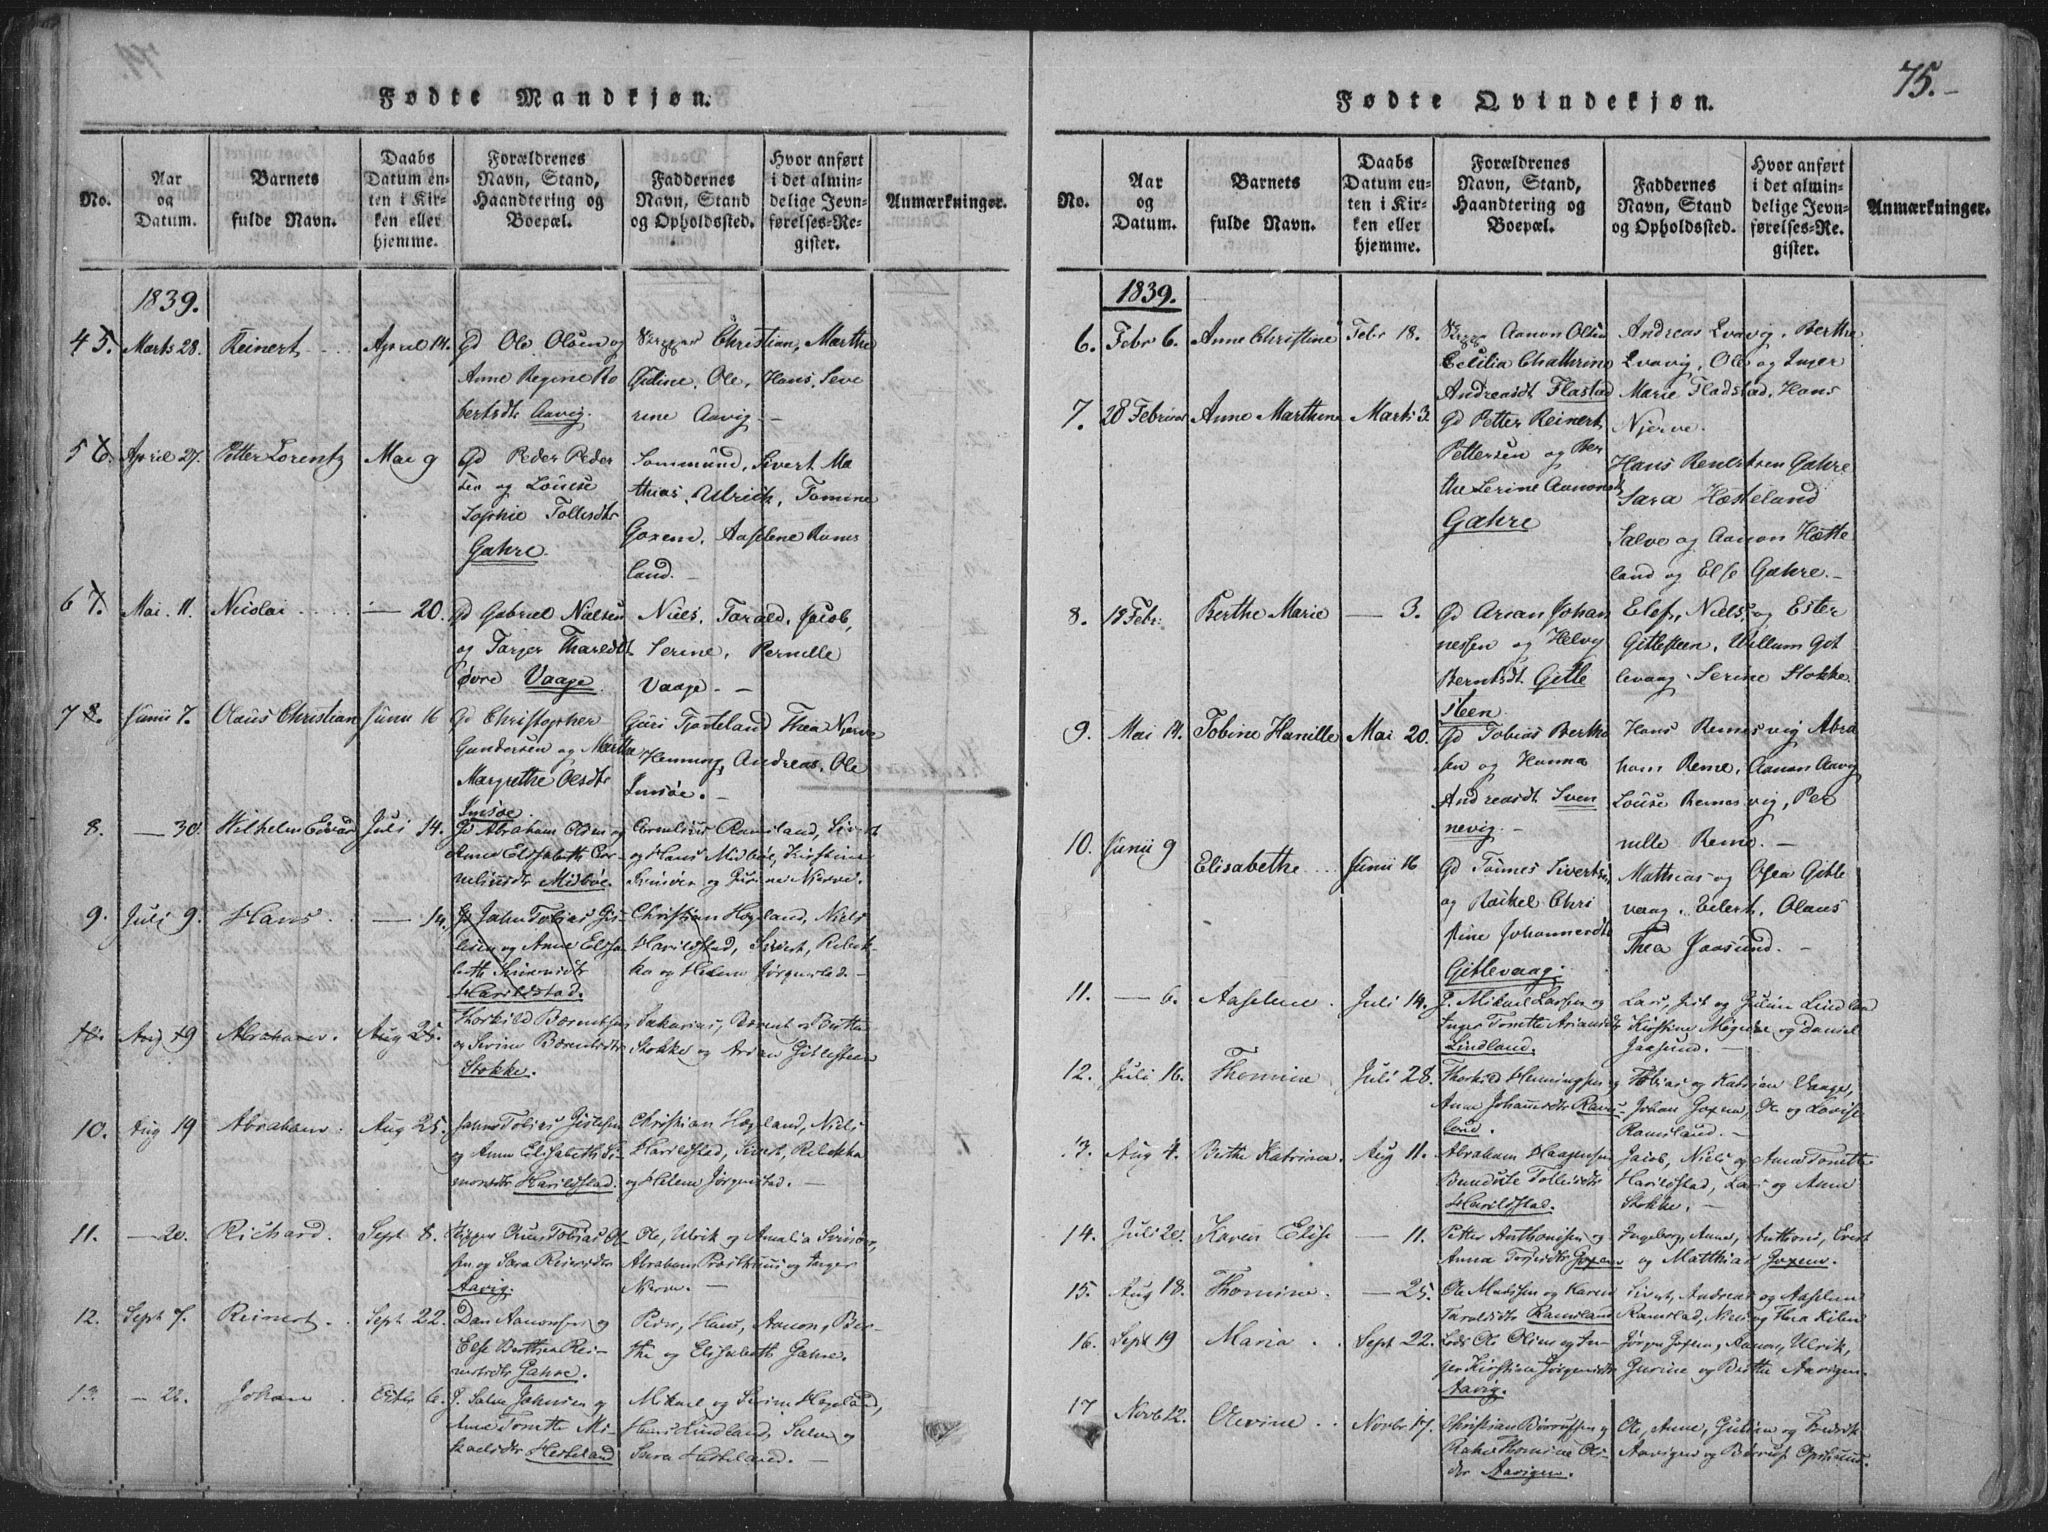 75.
Fødte Mandkjøn.
No.
Aar og Datum.
Barnets fulde Navn.
Daabs Datum enten i Kirken eller hjemme.
Forældrenes Navn, Stand, Haandtering og Boepæl.
Faddernes Navn, Stand og Opholdssted.
Hvor anført i det almindelige Jevnførelses-Register.
Anmærkninger.
1839.
5. Marts 28. Reinert April 14.
Gd Ole Olsen og
Anne Regine Ro
bertsdtr Aavig.
Skipper Christian, Marthe
Guline, Ole, Hans, Seve
rine Aavig
April 27. Petter Lorentz Mai 9
Gd Peder Peder
sen og Louise
Sophie Tollisdtr
Gahre.
Sommund, Sivert Ma
thias, Ulrich, Tomine
Goxem, Aaslene Rams
land.
Mai 11. Nicolai — 20.
Gd Gabriel Nielsen
og Tarjer Tharaldt
Øvre Vaage
Niels, Tarald, Jacob,
Serine, Pernille
Vaage. —
Junii 7. Olaus Christian Junii 16
Gd Christopher
Gundersen og Martha
Margrethe Olsdtr
Imsøe.
Guri Tjosteland Thea Njerve
Henning, Andreas, Ole
Imsøe. —
8. — 30. Wilhelm Juli 14.
Gd Abraham Olsen og
Anne Elisabeth Cor
neliusdtr Midbøe.
Cornelius Ramsland, Sivert
og Hans Midbøe, Kirstine
Svinøer og Gurine Njerve.
9. Juli 9. Hans — 14.
Gd Jahn Tobias Gis
lesen og Anne Elisa
beth Simonsdtr
Harildstad.
Christian Hogeland, Niels
Harildstad, Sivert, Rebek
ka og Helene Jørgenstad.
Aug 19 Abraham. Aug 25.
Thorkild Berntsen
og Serine Berntsdtr
Stokke.
Sakarias, Bernt og Berthe
Stokke og Arian Gitlesteen
10. Aug 19 Abraham Aug 25.
Jahn Tobias Gislesen
og Anne Elisabeth Si
monsdtr Harildstad.
Christian Hogeland, Niels
Harildstad, Sivert, Rebekka
og Helene Jørgenstad. —
11. — 20. Richard Sept 8.
Skipper Tobias Ol
sen og Sara Reiersdtr
Aavig.
Ole, Ulrik og Amalia Svinøer,
Abraham og Inger
Njerve. —
12. Sept 7. Reinert. Sept 22.
Dan Aanonsen og
Else Berthea Rei
nertsdtr Gahre.
Peder, Hans, Aanon, Ber
the og Elisabeth Gahre.
13. — 22. Johan
G. Salve Jahnsen og
Anne Tomette Mi
kaelsdtr Hesteland
Mikael og Serine Hogeland,
Hans Lindland, Salve og
Sara Hesteland. —
Fødte Qvindekjøn.
No.
Aar og Datum.
Barnets fulde Navn.
Daabs Datum enten i Kirken eller hjemme.
Forældrenes Navn, Stand, Haandtering og Boepæl.
Faddernes Navn, Stand og Opholdssted.
Hvor anført i det almindelige Jevnførelses-Register.
Anmærkninger.
1839.
6. Febr 6. Anne Christine Febr 18.
Skipp Aanon Olsen
Cecilia Chathrine
Andreasdt Flastad
Andreas Lvavig, Berthe
Lvavig, Ole og Inger
Marie Fladstad, Hans
Njerve.
7. 28 Februar Anne Marthine Marts 3.
Gd Petter Reinert
Pettersen og Ber
the Serine Aanonsdt
Gahre
Hans Reiertsen Gahre
Sara Hæsteland
Salve og Aanon Hæste
land og Else Gahre. —
8. 18 Febr. Berthe Marie — 3.
Gd Arian Johan
nessen og Helvig
Berntsdt. Gitle
steen.
Elef, Niels, og Ester
Gitlesteen, Willum Git
levaag, Serine Stokke.
9. Mai 14. Tobine Hanille Mai 20.
Gd Tobias Berthe
sen og Hanna
Andreasdt Sven
nevig. —
Hans Remesvig Abra
ham Reme, Aanon Aavig
Louise Remesvig, Per
nille Reme. —
10. Junii 9 Elisabethe Junii 16
Gd Tønnes Sivertsen
og Rachel Chri
stine Johannesdtr
Gitlevaag.
Matthias og Osea Gitle
vaag, Eilert, Olaus
Thea Jaasund. —
11. — 6. Aaselene. Juli 14.
G. Mikael Larsen og
Inger Tomette Ariansdt
Lindland.
Lars, og Guline Lindland
Kirstine og Daniel
Jaasund. —
12. Juli 16. Thomine Juli 28.
Thorkild Henningsen og
Anne Johannesdtr Rams
land.
Tobias og Katrine Vaage,
Johan Goxem, Ole og Lovise
Ramsland. —
13. Aug 4. Berthe Katrine. Aug 11.
Abraham Haagensen
Bendicte Tollevsdtr
Harildstad.
Jacob, Niels og Anne Tomette
Harildstad, Lars og Anne
Stokke. —
14. Juli 20. Karen Elise — 11.
Petter Anthonisen og
Anna Goxem
Ingeborg, Anne, Anthoni, Evert
og Matthias Goxem.
15. Aug 18. Thomine. — 25.
Ole Madssen og Karen
Taraldsdtr Ramsland
Sivert, Andreas og Aaselene
Ramsland, Niels og Thea Kilen
16. Sept 19 Maria Sept 22.
Lods Ole Olsen og In
ger Kirstine Jørgensdtr
Aavig.
Jørgen Goxem, Aanon, Ulrik,
Gurine og Berthe Aavigen.
17 Novb 12. Novbr 17.
Christian Børrufsen og
Rakel Thomine Ols
dtr Aavigen.
Ole, Anne, Guline og Fredrik
Aavigen og Børruf